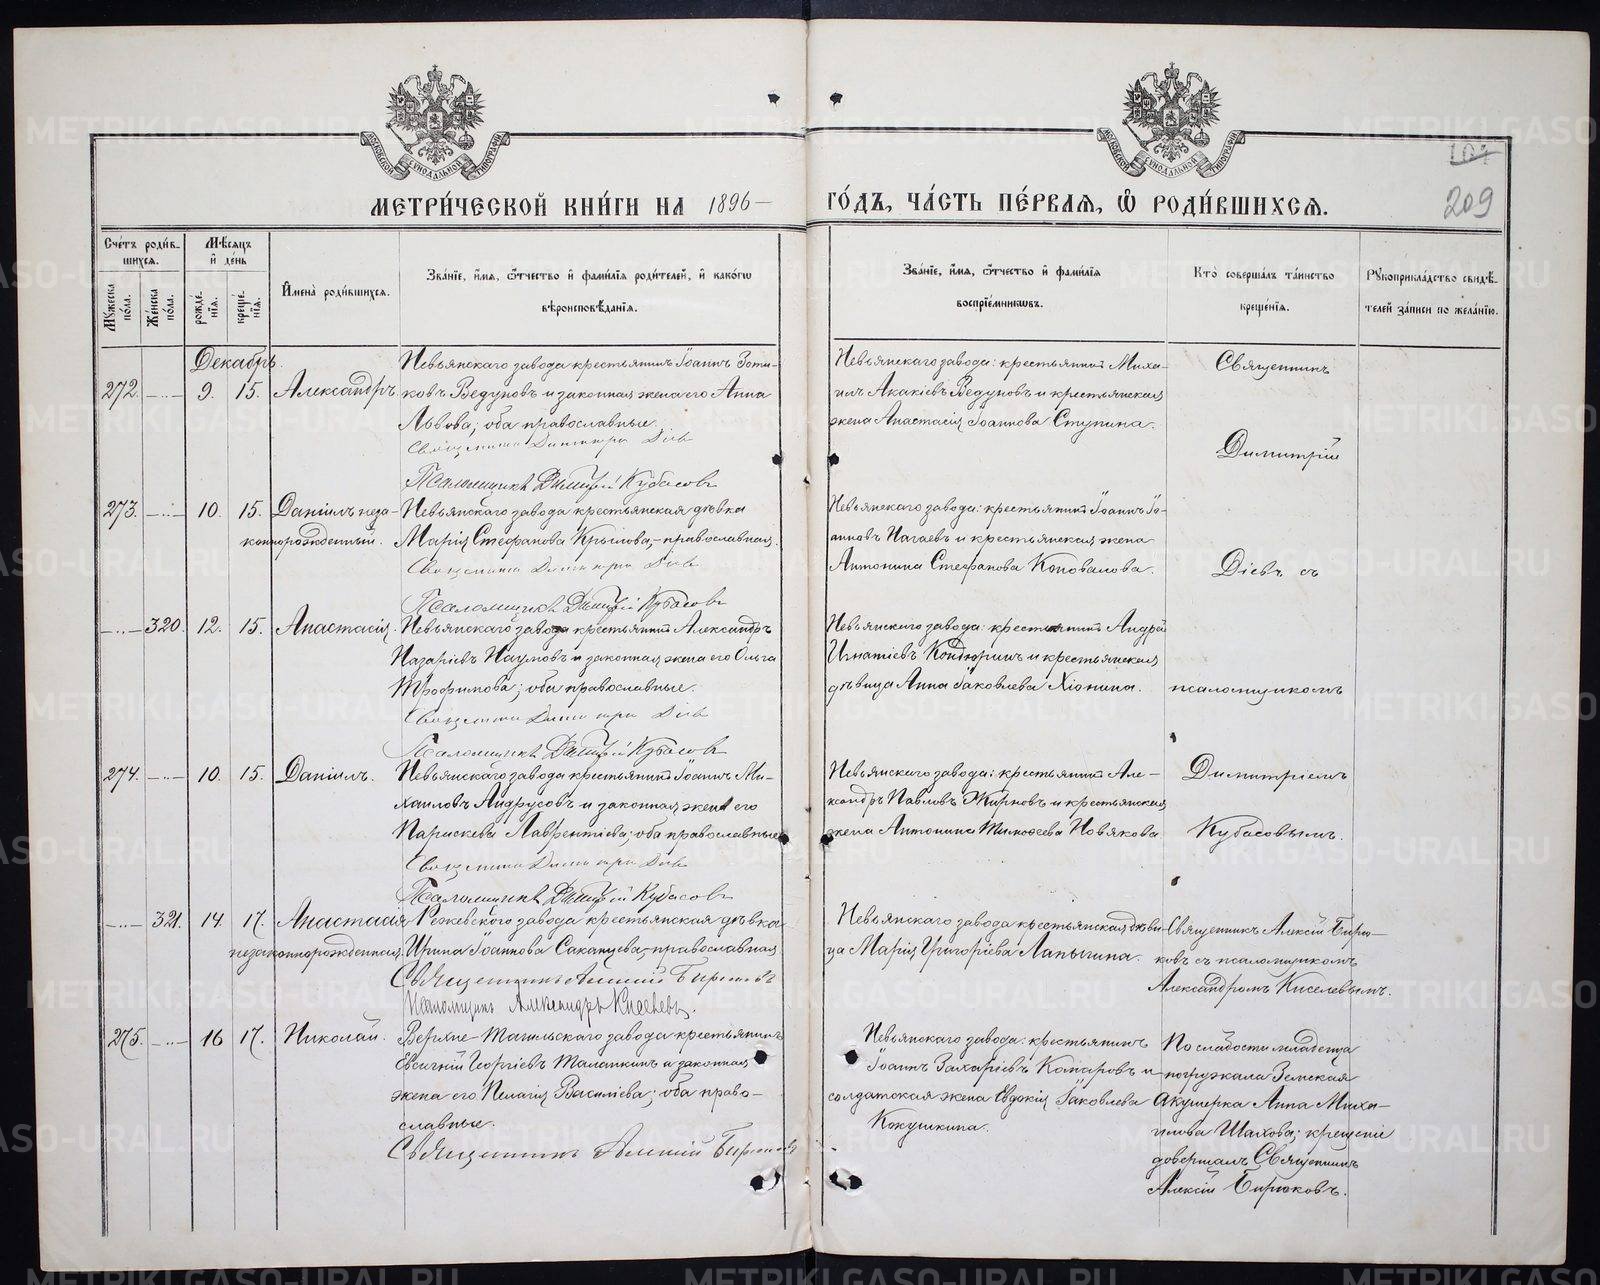 МЕТРИЧЕСКОЙ КНИГИ НА 1896 ГОДЪ, ЧАСТЬ ПЕРВАЯ, Ѿ РОДИВШИХСЯ.
209
Счетъ родив-
шихся.
Мѣсяцъ
и день
Мужеска пола.
Женска пола.
рожде-
нія.
креще-
нія.
Имена родившихся.
Званіе, имя, отчество и фамилія родителей, и какогѡ
вѣроисповѣданія.
Званіе, имя, отчество и фамилія
воспріемникѡвъ.
Кто совершалъ таинство
крещенія.
Рукоприкладство свидѣ-
телей записи по желанію.
Декабрь.
272. 9. 15. Александръ
Невьянскаго завода крестьянинъ Іоаннъ Зоти-
ковъ Ведуновъ и законная жена его Анна
Львова; оба православные.
Псаломщикъ Димитрій Кубасовъ
Невьянскаго завода: крестьянинъ Миха-
илъ Акакіевъ Ведуновъ и крестьянская
жена Анастасія Іоаннова Ступина.
Священникъ
Димитрій
273. 10. 15. Даніилъ неза-
коннорожденный.
Невьянскаго завода крестьянская дѣвка
Марія Стефанова Крылова, православная.
Псаломщикъ Димитрій Кубасовъ
Невьянскаго завода: крестьянинъ Іоаннъ Іо-
анновъ Нагаевъ и крестьянская жена
Антонина Стефанова Коновалова.
Діевъ съ
320. 12. 15. Анастасія.
Невьянскаго завода крестьянинъ Александръ
Назаріевъ Наумовъ и законная жена его Ольга
Трофимова; оба православные.
Псаломщикъ Димитрій Кубасовъ
Невьянскаго завода: крестьянинъ Андрей
Игнатіевъ Кондюринъ и крестьянская
дѣвица Анна Іаковлева Хіонина.
псаломщикомъ
274. 10. 15. Даніилъ.
Невьянскаго завода крестьянинъ Іоаннъ Ми-
хаиловъ Андрусовъ и законная жена его
Параскева Лаврентіева; оба православные
Псаломщикъ Димитрій Кубасовъ
Невьянскаго завода: крестьянинъ Але-
ксандръ Павловъ Жирновъ и крестьянская
жена Антонина Тимоѳеева Новякова
Димитріемъ
Кубасовымъ.
321. 14. 17. Анастасія
незаконнорожденная.
Режевскаго завода крестьянская дѣвка
Ирина Іоаннова Саканцева, православная
Священникъ Алексій Бирюковъ
Псаломщикъ Александръ Киселевъ.
Невьянскаго завода крестьянская дѣви-
ца Марія Григоріева Лапыгина.
Священникъ Алексій Бирю-
ковъ съ псаломщикомъ
Александромъ Киселевымъ.
275. 16 17. Николай.
Верхне-Тагильскаго завода крестьянинъ
Евсигній Георгіевъ Таланкинъ и законная
жена его Пелагія Васильева; оба право-
славные.
Священникъ Алексій Бирюковъ
Невьянскаго завода: крестьянинъ
Іоаннъ Захаріевъ Комаровъ и
солдатская жена Евдокія Іаковлева
Кокушкина.
По слабости младенца
погружала Земская
Акушерка Анна Миха-
илова Шахова; крещеніе
довершалъ Священникъ
Алексій Бирюковъ.
METRIKI.GASO-URAL.RU